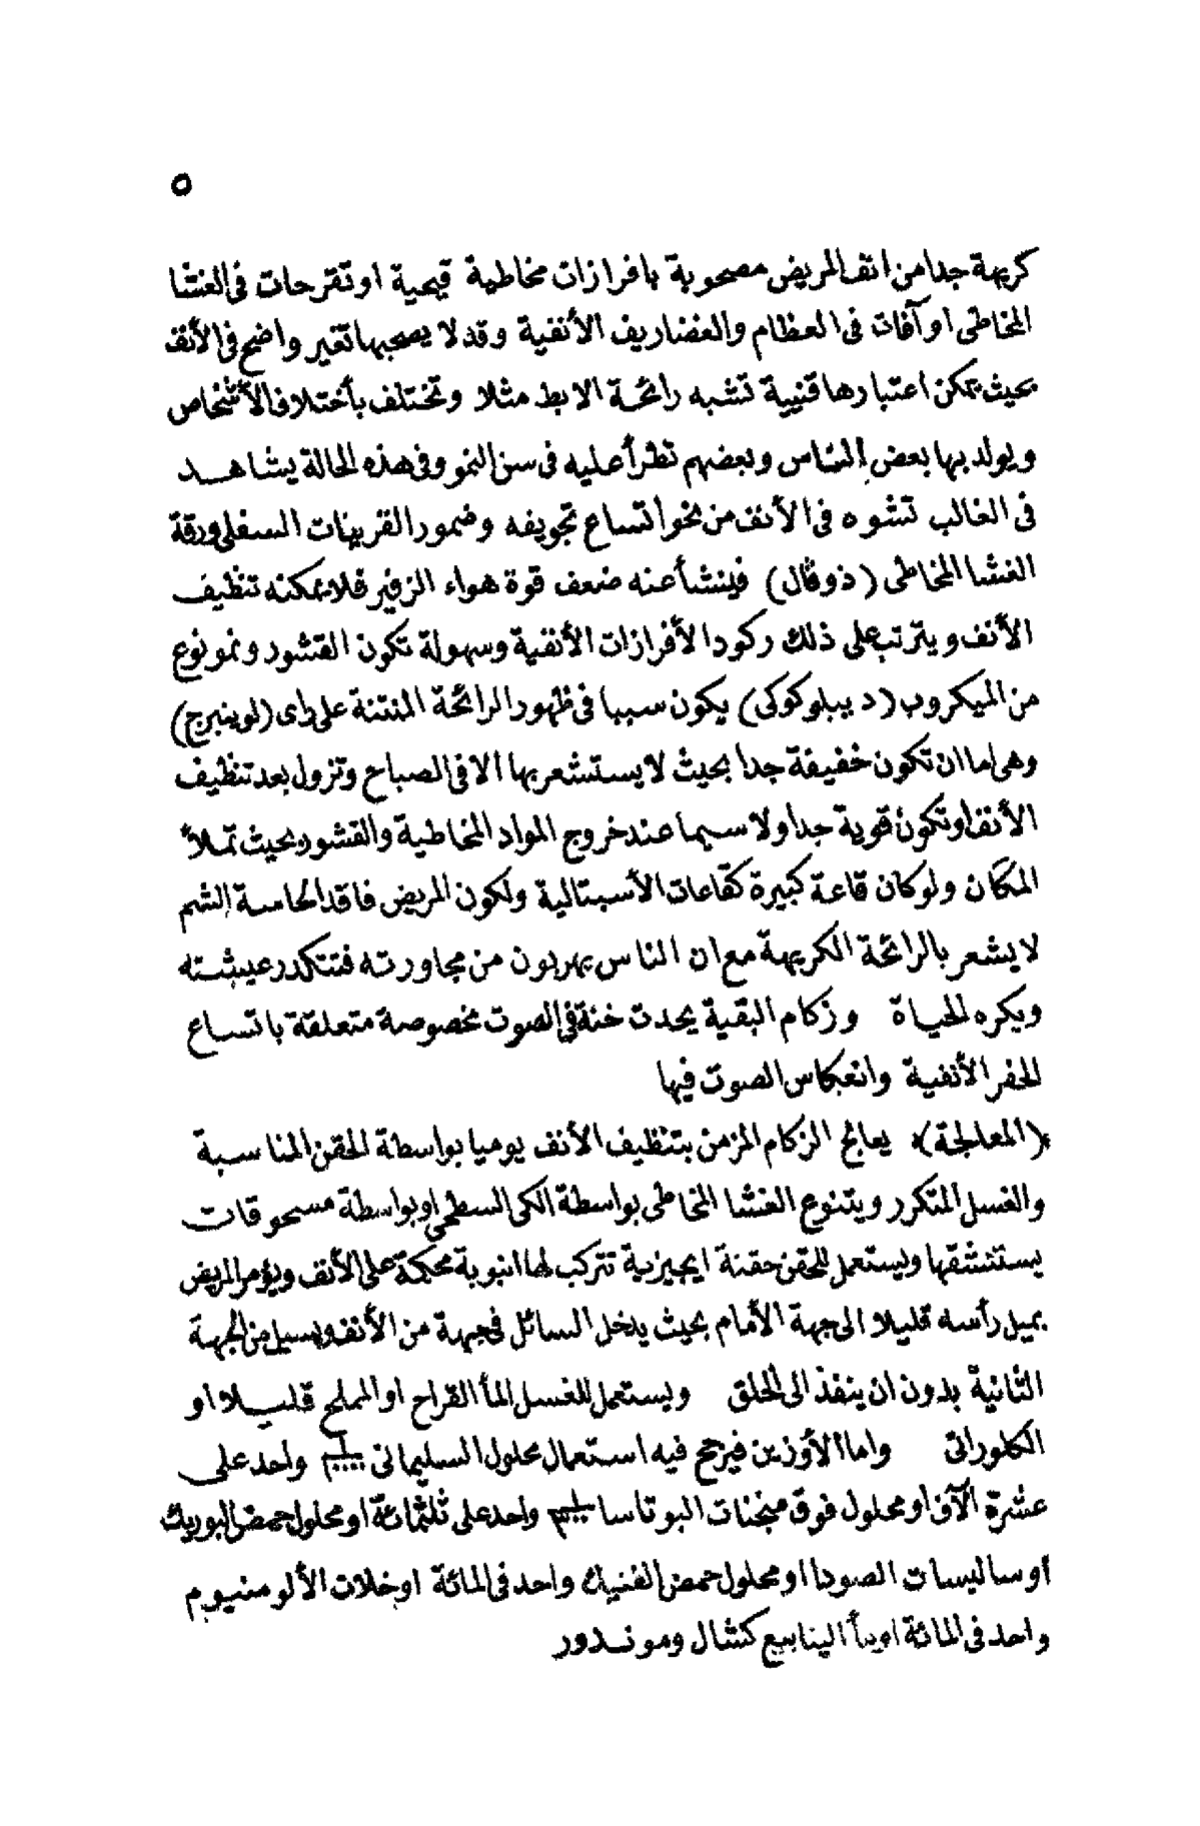 ٥
كريهة جدا من انف المريض مصحوبة بافرازات مخاطية قيحية او تقرحات فى الغشا
المخاطى او آفات فى العظام والغضاريف الأنفية وقد لا يصحبها تغير واضح فى الأنف
بحيث يمكن اعتبارها قنيية تشبه رائحة الابط مثلا وتختلف بأختلاف الأشخاص
ويولد بها بعض الناس وبعضهم تطرأ عليه فى سن النمو وفى هذه الحالة يشاهد
فى الغالب تشوه فى الأنف من نحو اتساع تجويفه وضمور القرينات السفلى ورقة
الغشا المخاطى (ذوقال) فينشأ عنه ضعف قوة هواء الزفير فلا يمكنه تنظيف
الأنف ويترتب على ذلك ركود الأفرازات الأنفية وسهولة تكون القشور ونمو نوع
من الميكروب (ديبلوكوكى) يكون سببا فى ظهور الرائحة المنتنة على راى (لوينبرج)
وهى اما ان تكون خفيفة جدا بحيث لا يستشعر بها الا فى الصباح وتزول بعد تنظيف
الأنف او تكون قوية جدا ولا سيما عند خروج المواد المخاطية والقشور بحيث تملأ
المكان ولو كان قاعة كبيرة كقاعات الأسبتالية ولكون المريض فاقد الحاسة الشم
لا يشعر بالرائحة الكريهة مع ان الناس يهربون من مجاورته فتتكدر عيشته
ويكره الحياة وزكام البقية يحدث خنة فى الصوت مخصوصة متعلقة باتساع
الحفر الأنفية وانعكاس الصوت فيها
(المعالجة) يعالج الزكام المزمن بتنظيف الأنف يوميا بواسطة الحقن المناسبة
والغسل المتكرر ويتنوع الغشا المخاطى بواسطة الكى السطحى او بواسطة مسحوقات
يستنشقها ويستعمل للحقن حقنة ايجيزية تتركب لها انبوبة محكمة على الأنف ويؤمر المريض
بميل رأسه قليلا الى جهة الأمام بحيث يدخل السائل فى جهة من الأنف ويسيل من الجهة
الثانية بدون ان ينفذ الى الحلق ويستعمل للغسل المأ القراح او المملح قليلا او
الكلوراتى واما الأوزين فيرجح فيه استعمال محلول السليمانى واحد على
عشرة آلاف او محلول فوق منجنات البوتاسا واحد على ثلثمائة او محلول حمض البوريك
او ساليسات الصودا او محلول حمض الفنيك واحد فى المائة او خلات الألومنيوم
واحد فى المائة او بمأ الينابيع كشال ومونددور